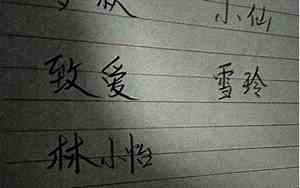 小仙
致爱 雪玲
林小怡